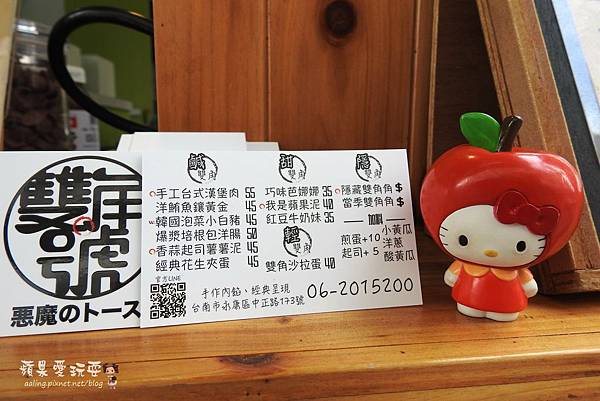 雙角號
悪魔のトース
鹹 雙角
手工台式漢堡肉 55
洋鮪魚鑲黃金 45
韓國泡菜小白豬 45
爆漿培根包洋腸 50
香蒜起司薯薯泥 45
經典花生夾蛋 45
官方LINE
甜 雙角
巧味芭娜娜 35
我是蘋果泥 40
紅豆牛奶妹 35
輕 雙角
雙角沙拉蛋 40
隱 雙角
隱藏雙角角 $
當季雙角角 $
加料
煎蛋+10
起司+5
小黃瓜
洋蔥
酸黃瓜
手作內餡、經典呈現
06-2015200
台南市永康區中正路173號
蘋果愛玩耍
aaling.pixnet.net/blog